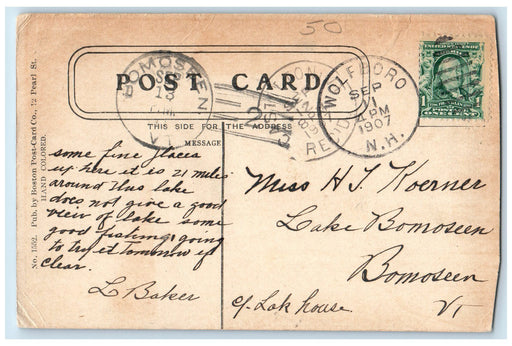 50
POST CARD
THIS SIDE FOR THE ADDRESS
MESSAGE
BOMOSEEN
SEP
VT
WOLFBORO
SEP
11
PM
1907
N.H.
No. 1552. Pub. by Boston Post-Card Co., 12 Pearl St.
HAND COLORED.
some fine places
up here it is 21 miles
around this lake
does not give a good
view of lake some
good fishing going
to try it tomorrow if
clear.
L Baker
Miss H J. Koerner
Lake Bomoseen
Bomoseen
Vt
c/o Lak house.